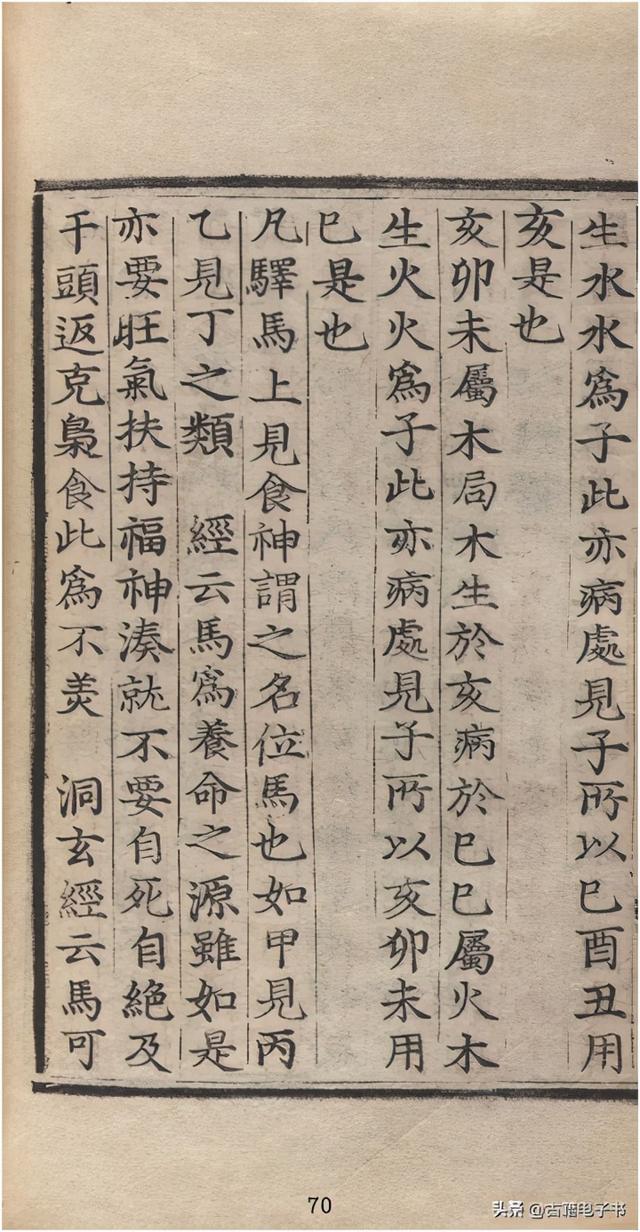 生水水爲子此亦病處見子所以巳酉丑用
亥是也
亥卯未屬木局木生於亥病於巳巳屬火木
生火火爲子此亦病處見子所以亥卯未用
巳是也
凡驛馬上見食神謂之名位馬也如甲見丙
乙見丁之類　經云馬爲養命之源雖如是
亦要旺氣扶持福神湊就不要自死自絶及
干頭返克梟食此爲不羙　洞玄經云馬可
70
头条@古籍电子书